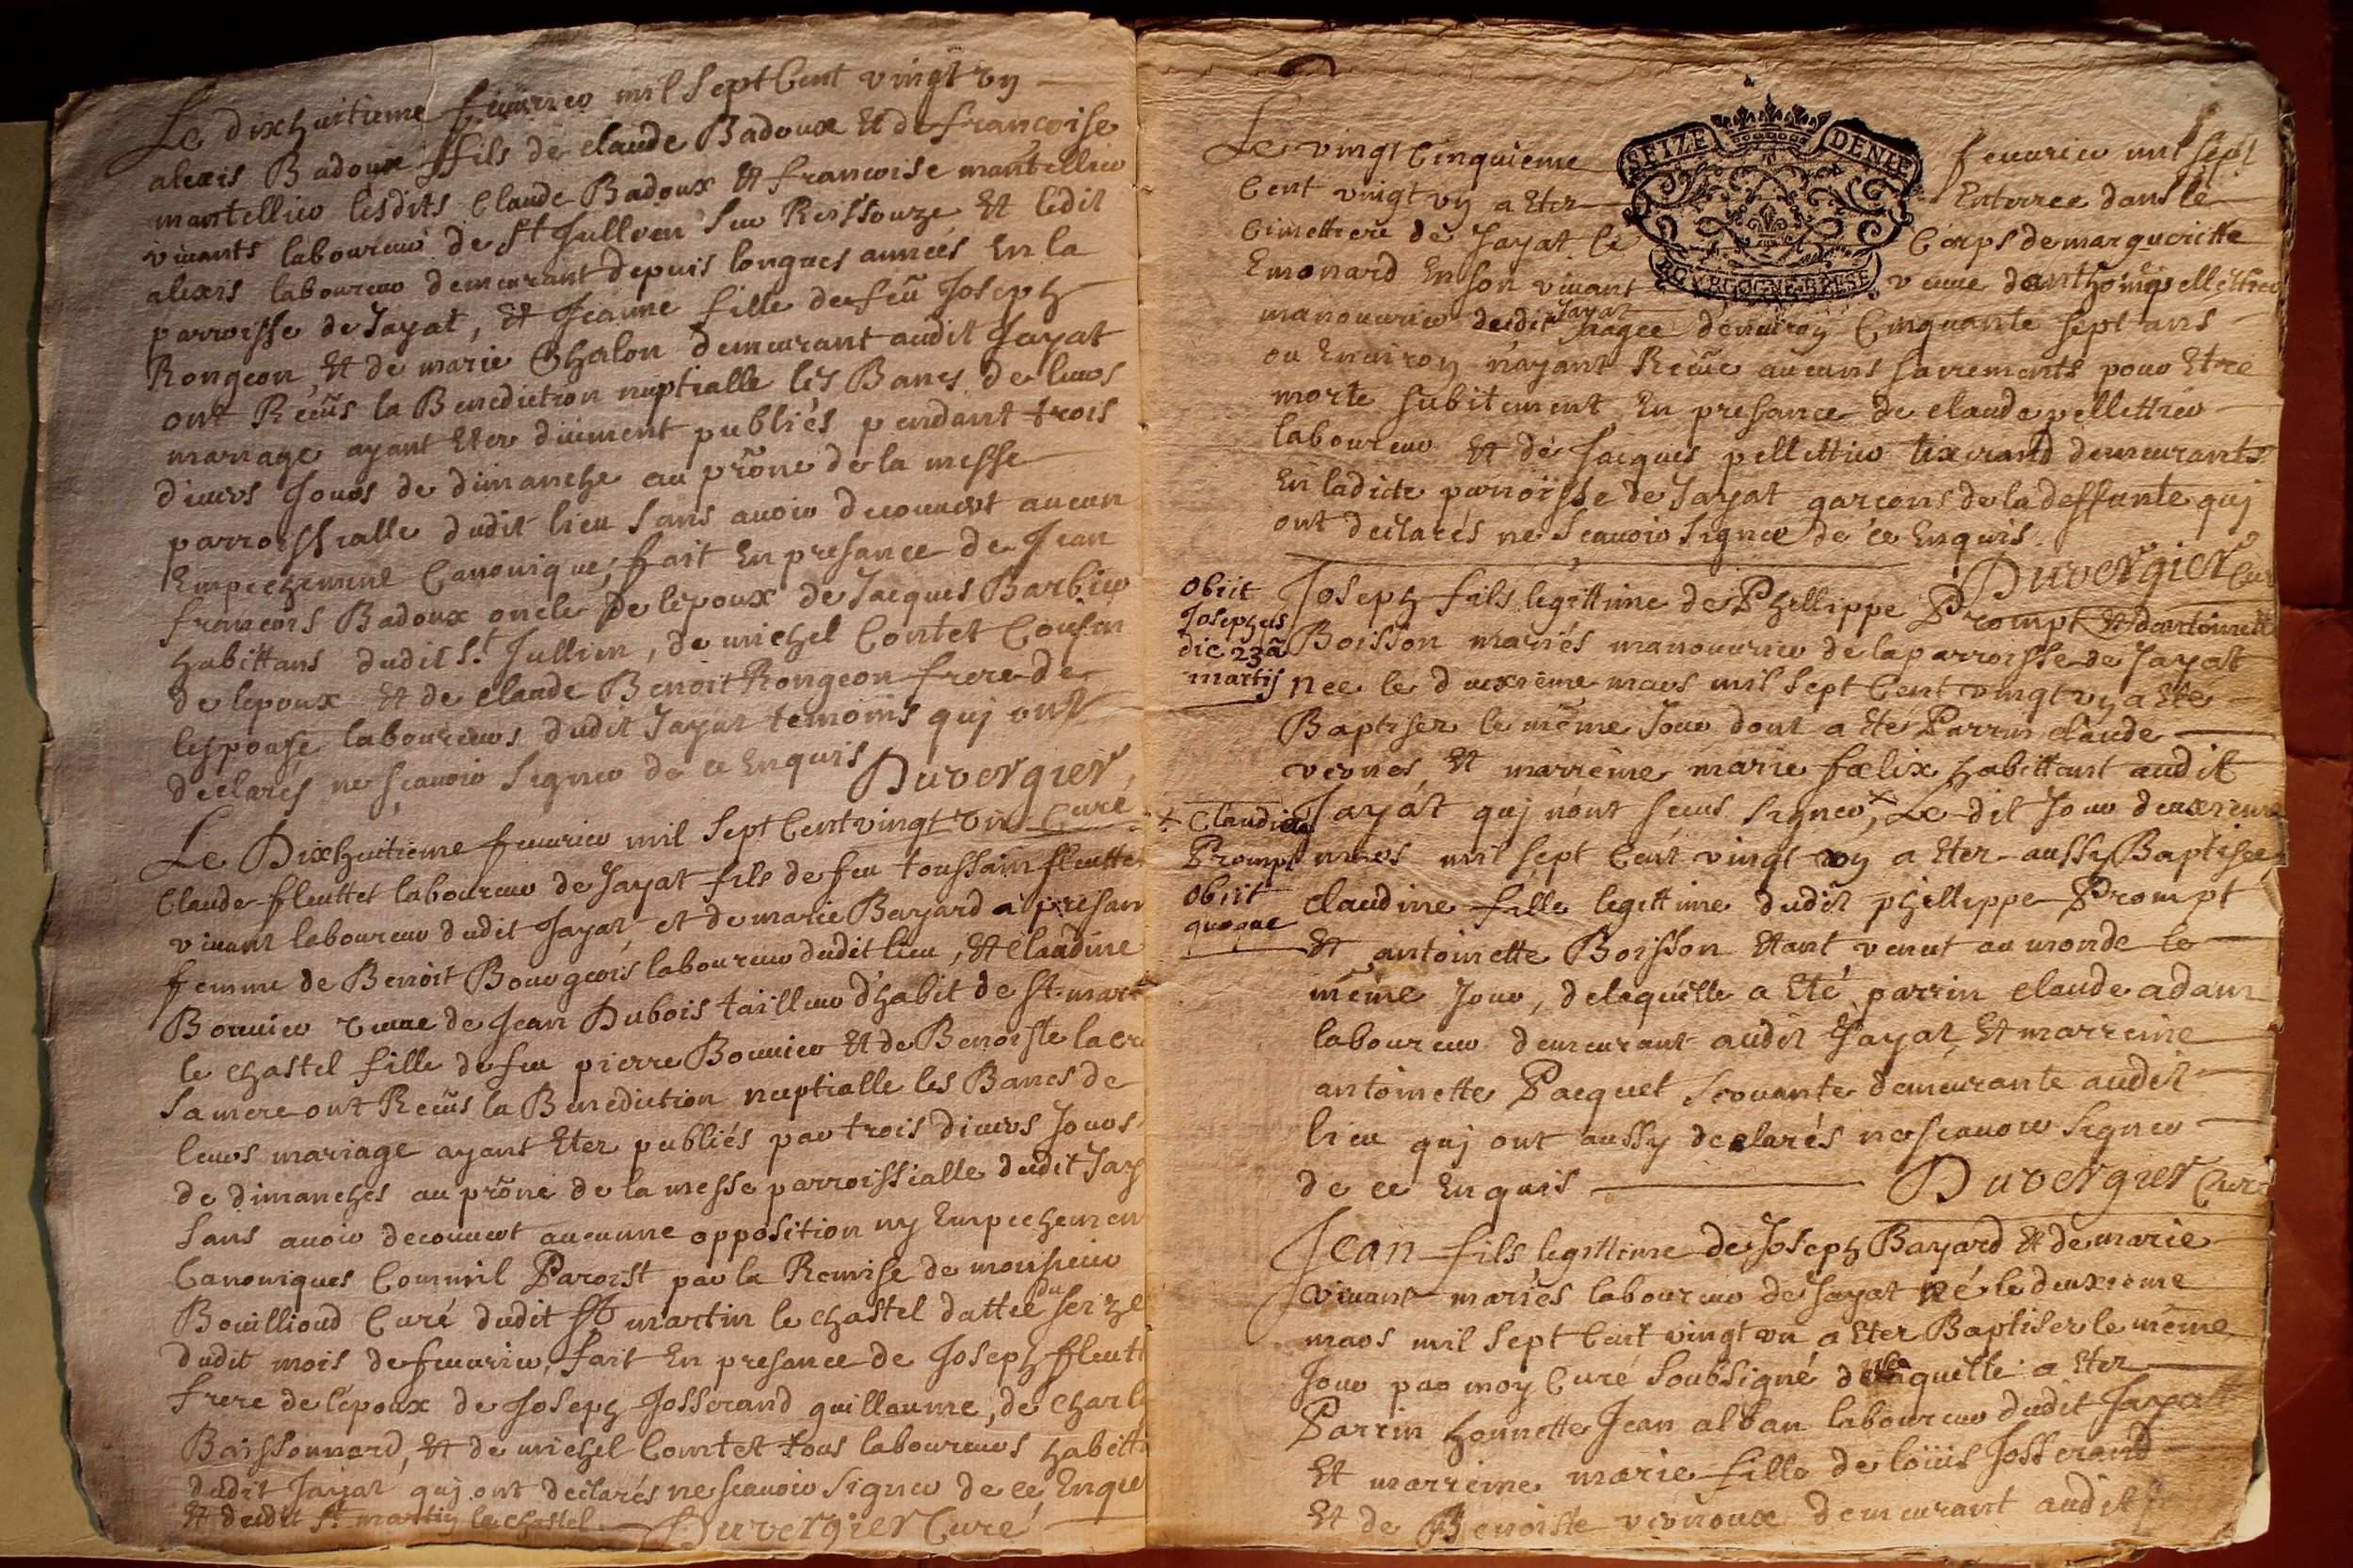 Le dixhuitieme feuurier mil sept Cent vingt vn
alexis Badoux ffils de claude Badoux Et de françoise
mantellier lesdits Claude Badoux Et francoise mantellier
viuants laboureur de St Jullien sur Reissouze Et ledit
alexis laboureur demeurant depuis longues années En la
parroisse de Jayat, Et Jeanne fille de feu Joseph
Rongeon, Et de marie Chalon demeurant audit Jayat
ont Reçus la Benediction nuptialle les Bancs de leurs
mariage ayant Eter düement publiés pendant trois
diuers Jours de dimanche au prône de la messe
parroissialle dudit lieu sans auoir decouuert aucun
Empechement Canonique, fait En presance de Jean
francois Badoux oncle de lépoux de Jacques Barbier
habittans dudit St Jullien, de michel Contet Cousin
de lepoux Et de claude Benoit Rongeon frere de
lespouse laboureurs dudit Jayat temoins quj ont
declarés ne sçauoir signer de ce Enquis Duvergier
Curé
Le Dixhuitieme feuurier mil sept Cent vingt vn
Claude fleuttet laboureur de Jayat fils de feu toussain fleuttet
viuant laboureur dudit Jayat et de marie Bayard a présan
femme de Benoit Bourgeois laboureur dudit lieu, Et Claudine
Bouuier veuue de Jean Dubois tailleur d'habit de St mart
le chastel fille de feu pierre Bouuier Et de Benoiste lacr
sa mere ont Reçus la Benediction nuptialle les Bancs de
leurs mariage ayant Eter publiés par trois diuers Jours
de dimanches au prône de la messe parroissialle dudit Jay
sans auoir decouuert aucunne opposition ny Empechemen
Canoniques Comm'il Paroist par la Remise de monsieur
Bouillioud Curé dudit St martin le chastel dattée du seize
dudit mois de feuurier, fait En presance de Joseph fleutt
frere de lépoux de Joseph Josserand guillaume, de charl
Boissonnard, Et de michel Comtet tous laboureurs habitt
dudit Jayat quj ont declarés ne scauoir signer de ce Enqu
Et dudit St martin le chastel Duvergier Curé
SEIZE DENIE
BOVRGOGNE BRESSE
Le vingt Cinquieme feuurier mil sept
Cent vingt vn a Eter Enterree dans le
Cimettiere de Jayat le Corps de margueritte
Emonard En son viuant veuue danthoine pellettier
manouurier dudit Jayat agee denuiron Cinquante sept ans
ou Enuiron n'ayant Reçüe aucuns sacrements pour Etre
morte subitement En presance de claude pellettier
laboureur Et de Jacques pellettier tixerand demeurants
En ladicte parroïsse de Jayat garcons de la deffunte quj
ont declarés ne sçauoir signer de ce Enquis
Duvergier Cur
obiit
Josephus
die 23ã
martij
Joseph fils legittime de Phillippe Prompt Et dantoinett
Boisson mariés manouurier de la parroisse de Jayat
née le deuxieme mars mil sept Cent vingt vn a Eté
Baptiser le même Jour dont a Eté Parrin claude
vernes, Et marreine marie fœlix habittant audit
Jayat quj n'ont sceus signer, × Le dit Jour deuxieme
× Claudina
Prompt
obiit
quoque
mars mil sept Cent vingt vn a Eter aussy Baptisée
claudine fille legittime dudit phillippe Prompt
Et antoinette Boisson Etant venut au monde le
même Jour, delaquelle a Eté parrin claude adam
laboureur demeurant audit Jayat, Et marreine
antoinette Pacquet seruante demeurante audit
lieu quj ont aussy declarés ne scauoir signer
de ce Enquis Duvergier Curé
Jean fils legittime de Joseph Bayard Et de marie
viuant mariés laboureur de Jayat né le deuxieme
mars mil sept Cent vingt vn a Eter Baptiser le même
Jour par moy Curé soubsigné delaquelle a Eter
Parrin honnette Jean alban laboureur dudit Jayat
Et marreine marie fille de loüis Josserand
Et de Benoiste vernoux demeurant audit